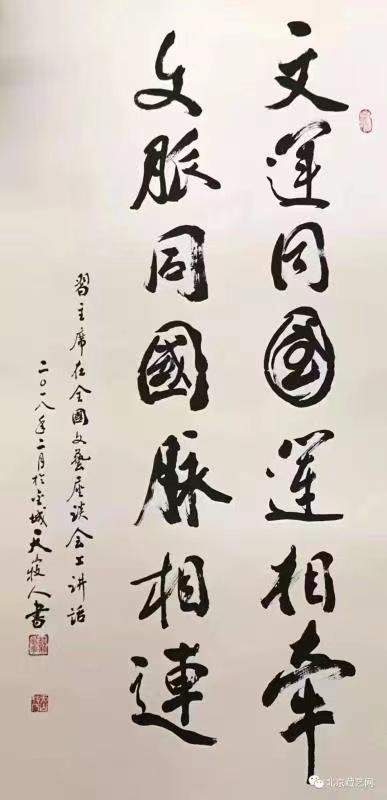 文運同國運相牽
文脈同國脈相連
習主席在全國文藝座談会上講话
二〇一八年二月於金城天牧人書
北京藏艺网